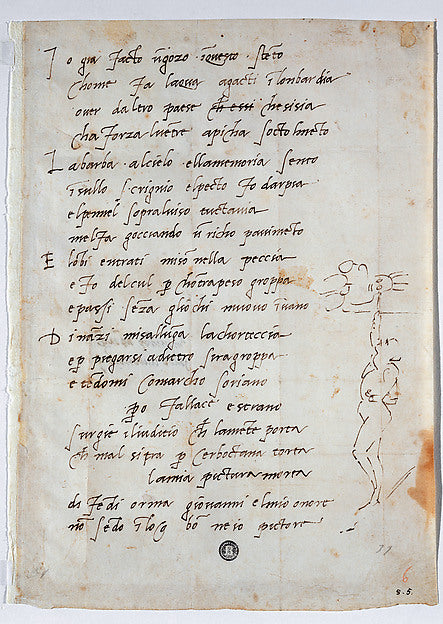 Io gia facto ũgozo ĩquesto stẽto
chome fa laqua agacti ĩlombardia
over daltro paese ch essi che sisia
cha forza lvẽtre apicha socto lmẽto
La barba alcielo ellamemoria sento
ĩsullo scrignio elpecto fo darpia
elpennel sopraluiso tuctavia
melfa gocciando ũ richo pavimẽto
E lõbi entrati miso nella peccia
e fo delcul ꝑ chõtrapeso groppa
e passi sẽza gliochi muovo ĩvano
Dinãzi misallũga lachorteccia
e ꝑ piegarsi adietro siragroppa
e tẽdomi comarcho soriano
ꝑo fallace e strano
surgie iliudicio ch lamẽte porta
ch mal sitra ꝑ cerboctana torta
lamia pictura morta
difẽdi orma giovanni elmio onore
nõ sẽdo ĩlog bõ ne io pictore
6
8.5.